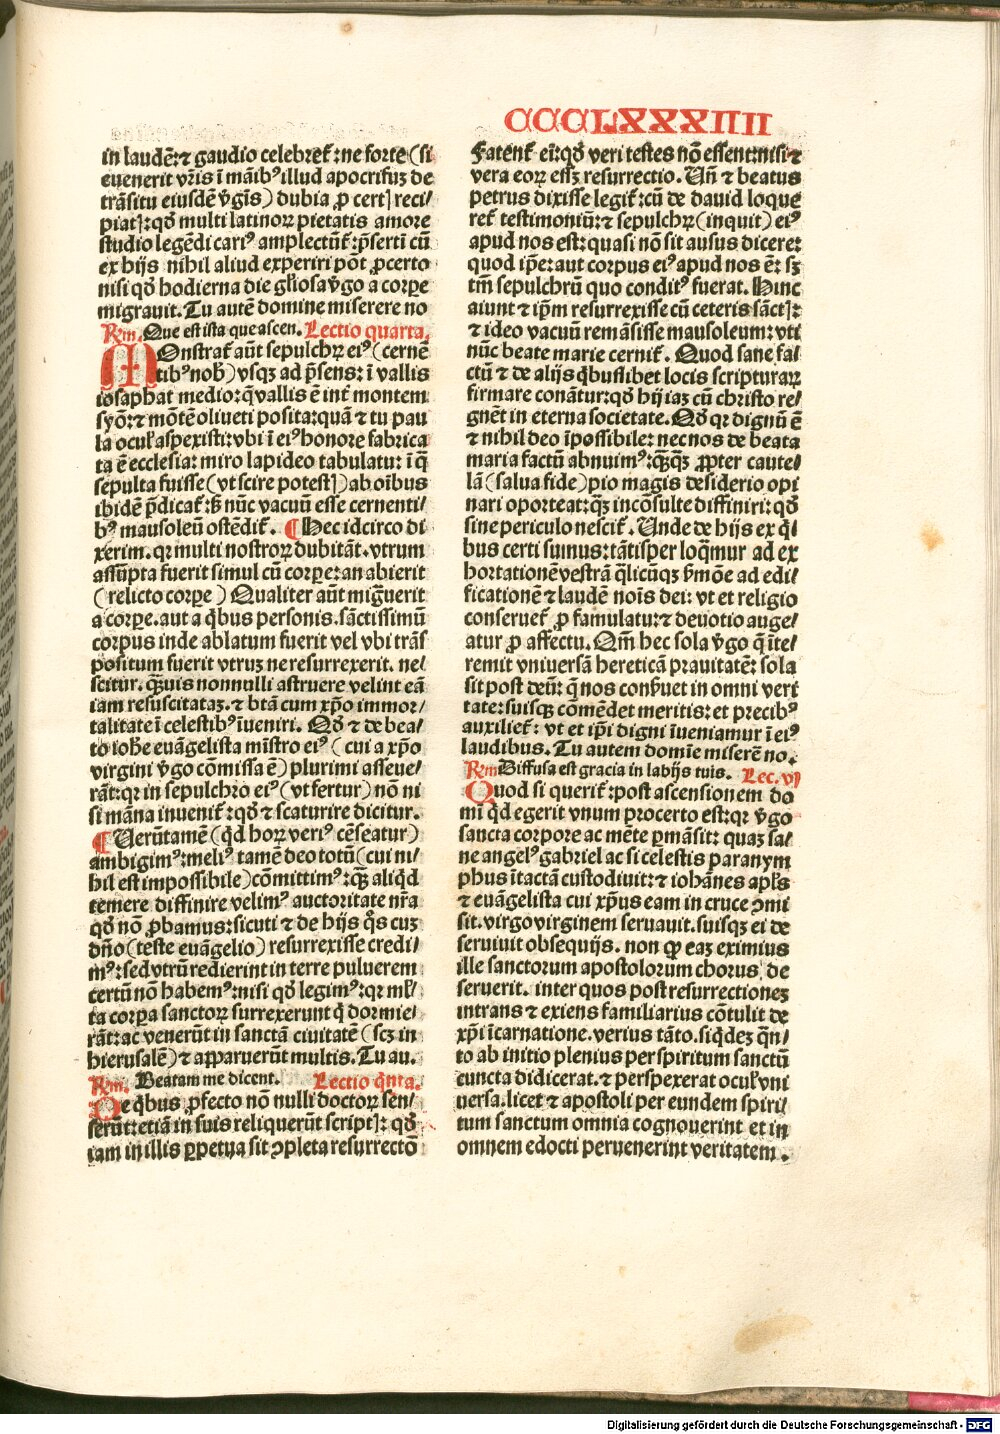 CCCLXXXIIII
in laudē: ⁊ gaudio celebret᷑: ne forte (si
euenerit vr̄is ī māib⁹ illud apocrifuʒ de
trāsitu eiusdē v̄gīs) dubia ꝓ certꝭ reci⸗
piatꝭ: qđ multi latinoꝝ pietatis amore
studio legēdi cari⁹ amplectūt᷑: p̄sertī cū
ex hijs nihil aliud experiri pōt ꝓcerto
nisi qđ hodierna die gl̓iosa v̄go a corꝑe
migrauit. Tu autē domine miserere no
Rm̄. Que est ista que ascen. Lectio quarta.
MOnstrat᷑ aūt sepulchꝝ ei⁹ (cernē
tib⁹ nob̄) vsqʒ ad p̄sens: ī vallis
iosaphat medio: q̄ vallis ē int᷑ montem
syō: ⁊ mōtē oliueti posita: quā ⁊ tu pau
la ocul̓ aspexisti: vbi ī ei⁹ honore fabrica
ta ē ecclesia: miro lapideo tabulatu: ī q̄
sepulta fuisse (vt scire potestꝭ) ab oībus
ibidē p̄dicat᷑: sꝫ nūc vacuū esse cernenti⸗
b⁹ mausoleū ostēdit᷑. ¶ Hec idcirco di
xerim. qꝛ multi nostroꝝ dubitāt. vtrum
assūpta fuerit simul cū corꝑe: an abierit
(relicto corꝑe) Qualiter aūt migͣuerit
a corꝑe. aut a qͥbus personis. sāctissimū
corpus inde ablatum fuerit vel vbi trās
positum fuerit vtruʒ ne resurrexerit. ne⸗
scitur. qͣʒuis nonnulli astruere velint eā
iam resuscitataʒ. ⁊ btā cum xp̄o immor⸗
talitate ī celestib⁹ īueniri. Qđ ⁊ de bea⸗
to iohe euāgelista mīstro ei⁹ (cui a xp̄o
virgini v̄go cōmissa ē) plurimi asseue⸗
rāt: qꝛ in sepulchro ei⁹ (vt fertur) nō ni
si māna inuenit᷑: qđ ⁊ scaturire dicitur.
¶ Uerūtamē (qͥd hoꝝ veri⁹ cēseatur)
ambigim⁹: meli⁹ tamē deo totū (cui ni⸗
hil est impossibile) cōmittim⁹: qͣʒ aliqͥd
temere diffinire velim⁹ auctoritate nr̄a
qđ nō ꝓbamus: sicuti ⁊ de hijs qͦs cuʒ
dn̄o (teste euāgelio) resurrexisse credi⸗
m⁹: sed vtrū redierint in terre puluerem
certū nō habem⁹: nisi qđ legim⁹: qꝛ ml̓⸗
ta corꝑa sanctoꝝ surrexerunt q̄ dormie⸗
rāt: ac venerūt in sanctā ciuitatē (scʒ in
hierusalē) ⁊ apparuerūt multis. Tu au.
Rm̄. Beatam me dicent. Lectio qͥnta.
De qͥbus ꝓfecto nō nulli doctoꝝ sen⸗
serūt: etiā in suis reliquerūt scriptꝭ: qđ
iam in illis ꝑpetua sit ɔpleta resurrectō
Fatent᷑ eī: qđ veri testes nō essent: nisi ⁊
vera eoꝝ essʒ resurrectio. Uñ ⁊ beatus
petrus dixisse legit᷑: cū de dauid loque
ret᷑ testimoniū: ⁊ sepulchꝝ (inquit) ei⁹
apud nos est: quasi nō sit ausus dicere:
quod ip̄e: aut corpus ei⁹ apud nos ē: sʒ
tm̄ sepulchrū quo condit⁹ fuerat. Hinc
aiunt ⁊ ip̄m resurrexisse cū ceteris sāctꝭ:
⁊ ideo vacuū remāsisse mausoleum: vti
nūc beate marie cernit᷑. Quod sane fa⸗
ctū ⁊ de alijs qͥbuslibet locis scripturaꝝ
firmare conātur: qđ hij iaʒ cū christo re⸗
gnēt in eterna societate. Qđ qꝛ dignū ē
⁊ nihil deo īpossibile: nec nos de beata
maria factū abnuim⁹: qͣʒqͣʒ ꝓpter caute⸗
lā (salua fide) pio magis desiderio opi
nari oporteat: qͣʒ incōsulte diffiniri: qđ
sine periculo nescit᷑. Unde de hijs ex qͥ⸗
bus certi sumus: tātisper loqͣmur ad ex
hortationē vestrā qͣlicūqʒ ẜmōe ad edi⸗
ficationē ⁊ laudē nois dei: vt et religio
conseruet᷑ ꝓ famulatu: ⁊ deuotio auge⸗
atur ꝓ affectu. Qm̄ hec sola v̄go q̄ īte⸗
remit vniuersā hereticā prauitatē: sola
sit post deū: q̄ nos conẜuet in omni veri
tate: suisqʒ comēdet meritis: et precib⁹
auxiliet᷑: vt et ip̄i digni īueniamur ī ei⁹
laudibus. Tu autem domīe miserē no.
Rm̄ Diffusa est gracia in labijs tuis. Lec. vj
Quod si querit᷑: post ascensionem do
mī qͥd egerit vnum procerto est: qꝛ v̄go
sancta corpore ac mēte ꝑmāsit: quaʒ sa⸗
ne angel⁹ gabriel ac si celestis paranym
phus ītactā custodiuit: ⁊ iohānes apl̓s
⁊ euāgelista cui xp̄us eam in cruce ɔmi
sit. virgo virginem seruauit. suisqʒ ei de
seruiuit obsequijs. non qͦ eaʒ eximius
ille sanctorum apostolorum chorus, de
seruerit. inter quos post resurrectioneʒ
intrans ⁊ exiens familiarius cōtulit de
xp̄i īcarnatione. verius tāto. siqͥdeʒ qͣn⸗
to ab initio plenius per spiritum sanctū
cuncta didicerat. ⁊ perspexerat ocul̓ vni
uersa. licet ⁊ apostoli per eundem spiri⸗
tum sanctum omnia cognouerint et in
omnem edocti peruenerint veritatem.
Digitalisierung gefördert durch die Deutsche Forschungsgemeinschaft - DFG